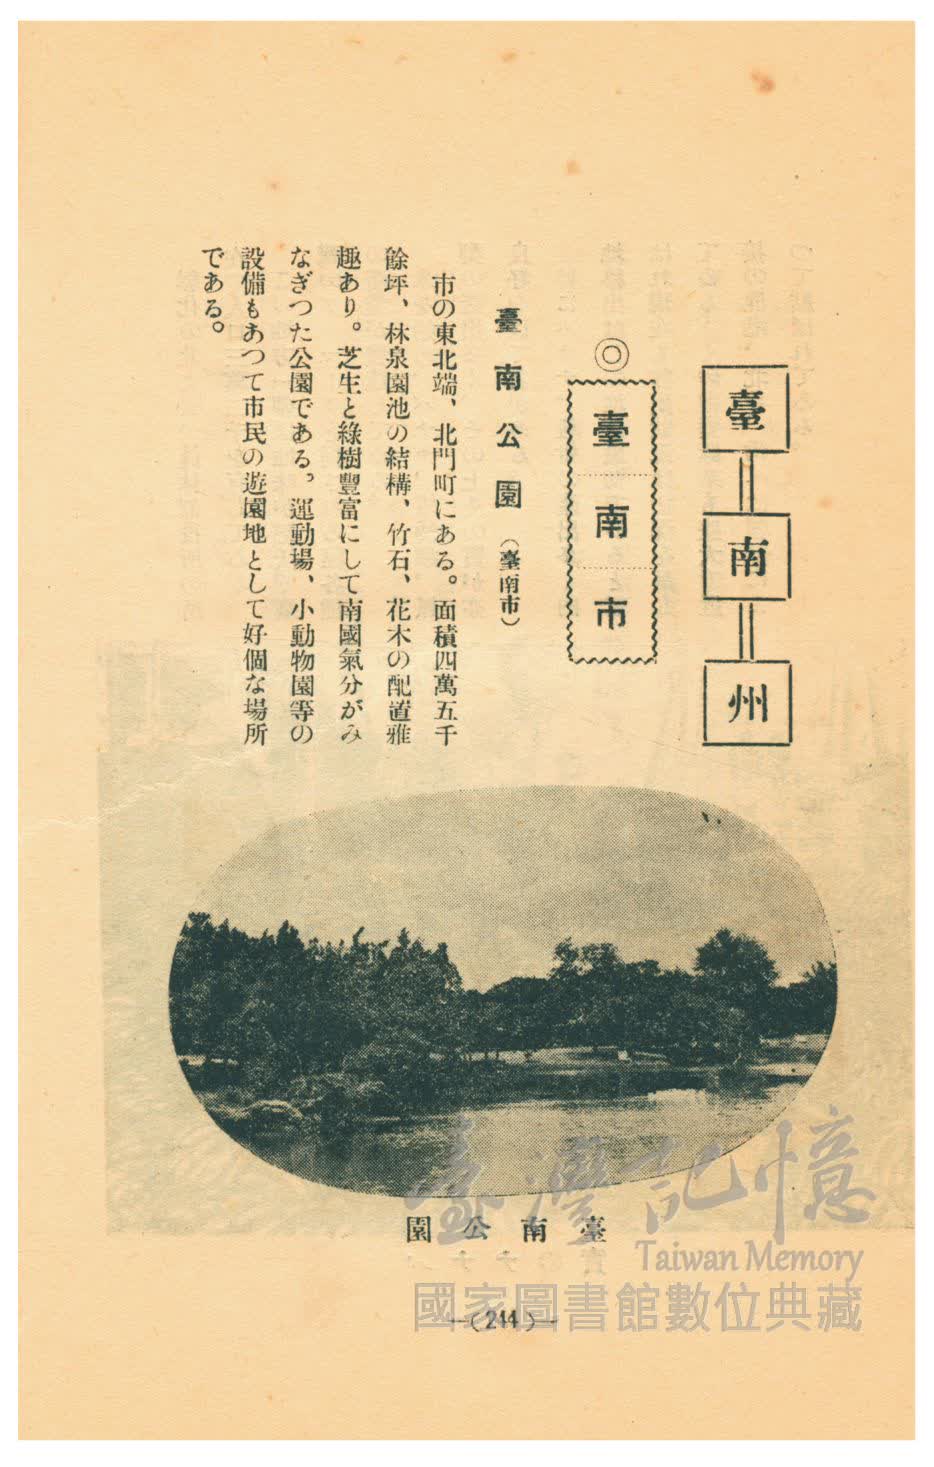 臺南州
◎
臺南市
臺南公園（臺南市）
市の東北端、北門町にある。面積四萬五千
餘坪、林泉園池の結構、竹石、花木の配置雅
趣あり。芝生と綠樹豐富にして南國氣分がみ
なぎつた公園である。運動場、小動物園等の
設備もあつて市民の遊園地として好個な場所
である。
園公南臺
—(244)—
臺灣記憶
Taiwan Memory
國家圖書館數位典藏